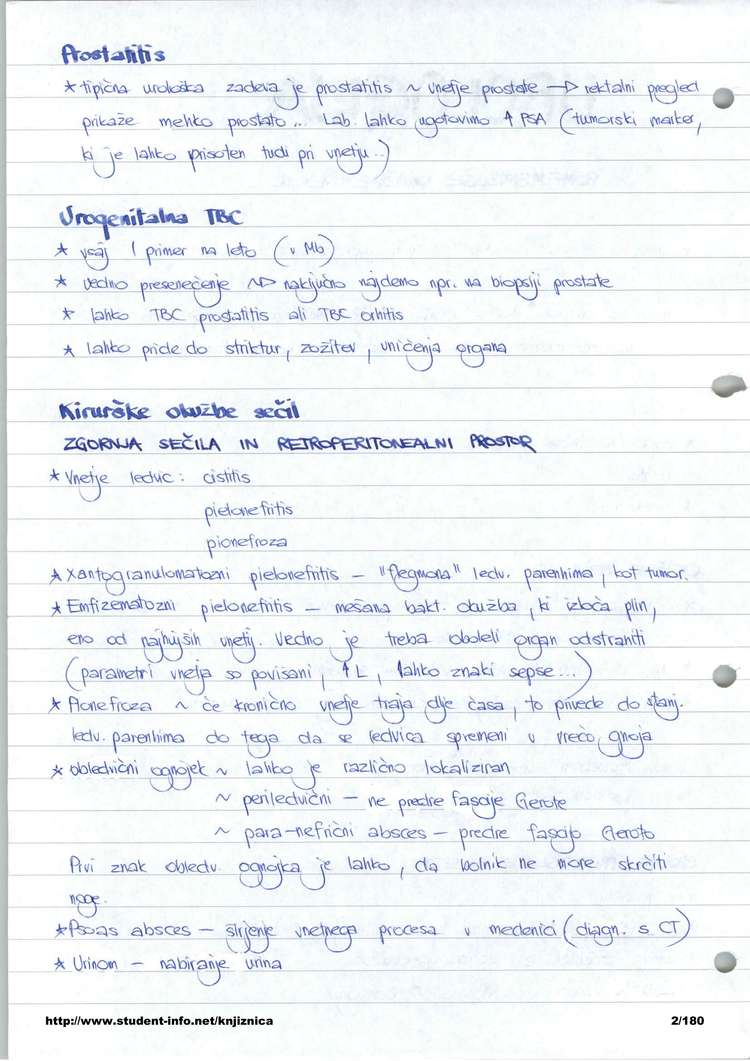 Prostatitis
* tipična urološka zadeva je prostatitis ~ vnetje prostate → rektalni pregled
prikaže mehko prostato... Lab. lahko ugotovimo ↑ PSA (tumorski marker,
ki je lahko prisoten tudi pri vnetju..)
Urogenitalna TBC
* vsaj 1 primer na leto (v Mb)
* vedno presenečenje ~> naključno najdemo npr. na biopsiji prostate
* lahko TBC prostatitis ali TBC orhitis
* lahko pride do striktur, zožitev, uničenja organa
Kirurške okužbe sečil
ZGORNJA SEČILA IN RETROPERITONEALNI PROSTOR
* Vnetje ledvic: cistitis
pielonefritis
pionefroza
* Xantogranulomatozni pielonefritis – "flegmona" ledv. parenhima, kot tumor.
* Emfizematozni pielonefritis – mešana bakt. okužba, ki izloča plin,
eno od najhujših vnetij. Vedno je treba oboleli organ odstraniti
(parametri vnetja so povišani, ↑ L, lahko znaki sepse...)
* Pionefroza ~ če kronično vnetje traja dlje časa, to privede do stanj.
ledv. parenhima do tega da se ledvica spremeni v vrečo gnoja
* obledvični ognojek ~ lahko je različno lokaliziran
~ periledvični – ne predre fascije Gerote
~ para-nefrični absces – predre fascijo Geroto
Prvi znak obledv. ognojka je lahko, da bolnik ne more skrčiti
noge.
* Psoas absces – širjenje vnetnega procesa v medenici (diagn. s CT)
* Urinom – nabiranje urina
http://www.student-info.net/knjiznica 2/180